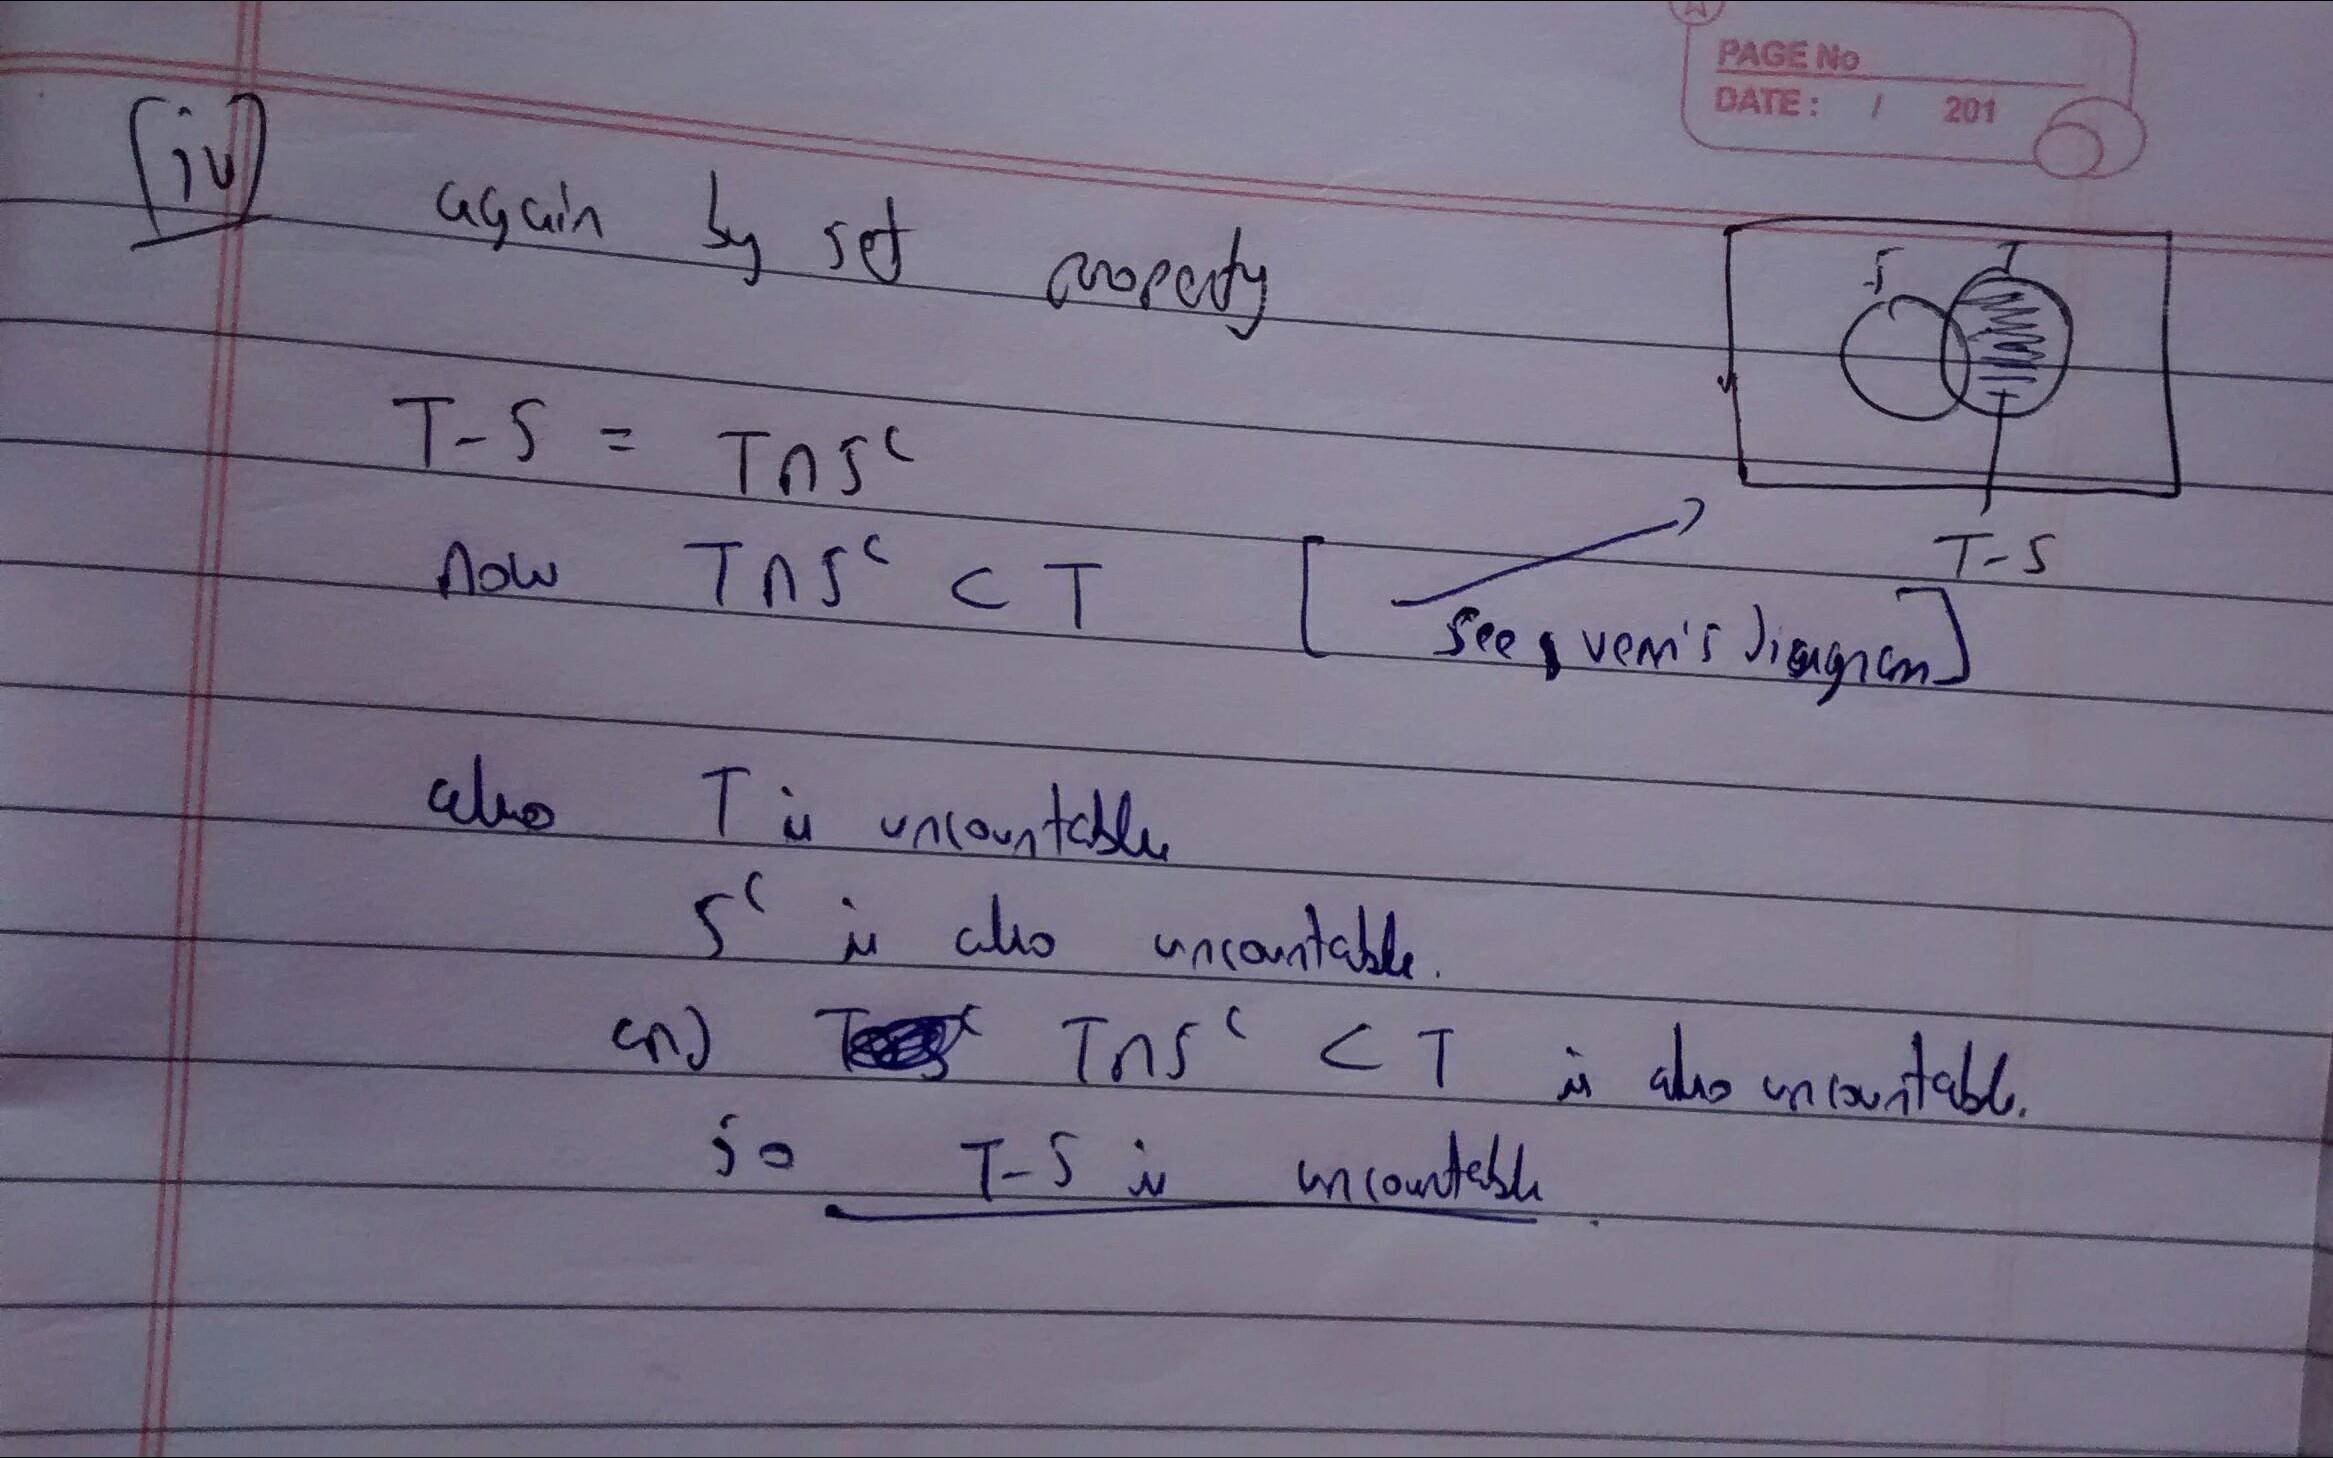 PAGE No
DATE: / 201
(iv) again by set property
S T
T-S = T∩Sᶜ
T-S
now T∩Sᶜ ⊂ T [ see venn's diagram ]
also T is uncountable
Sᶜ is also uncountable.
and T∩Sᶜ ⊂ T is also uncountable.
so T-S is uncountable.